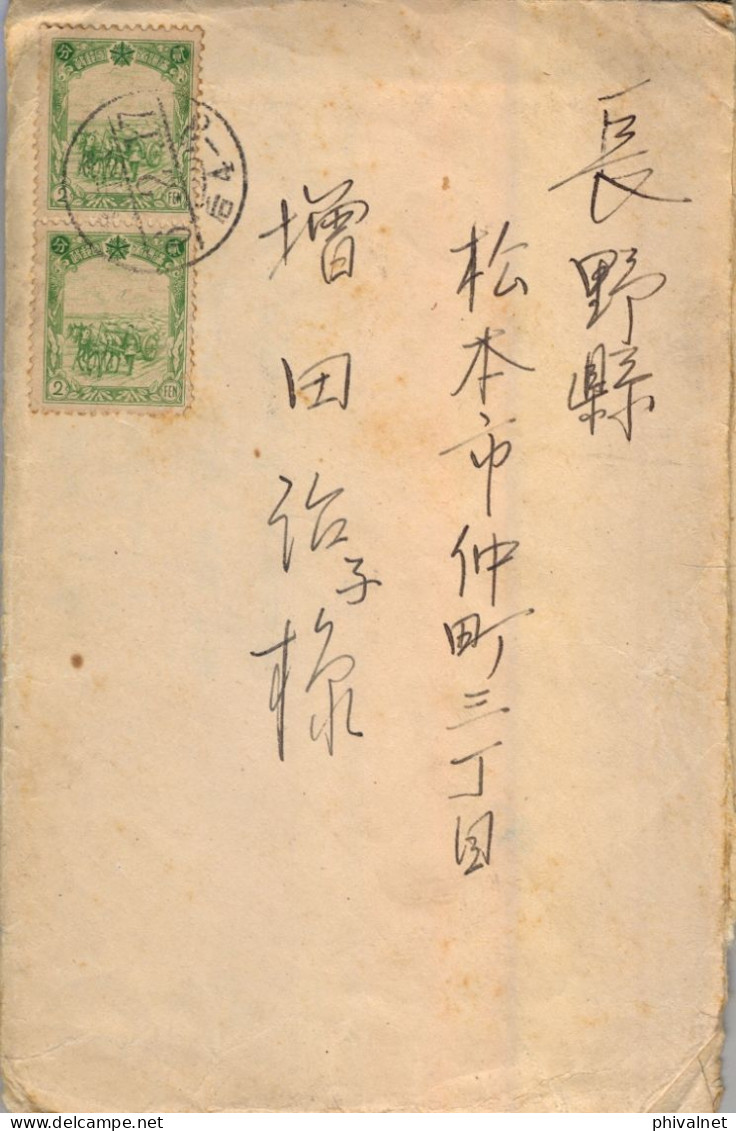 長野縣
松本市仲町三丁目
増田治子様
分 貳
2 FEN
分 貳
2 FEN
phivalnet